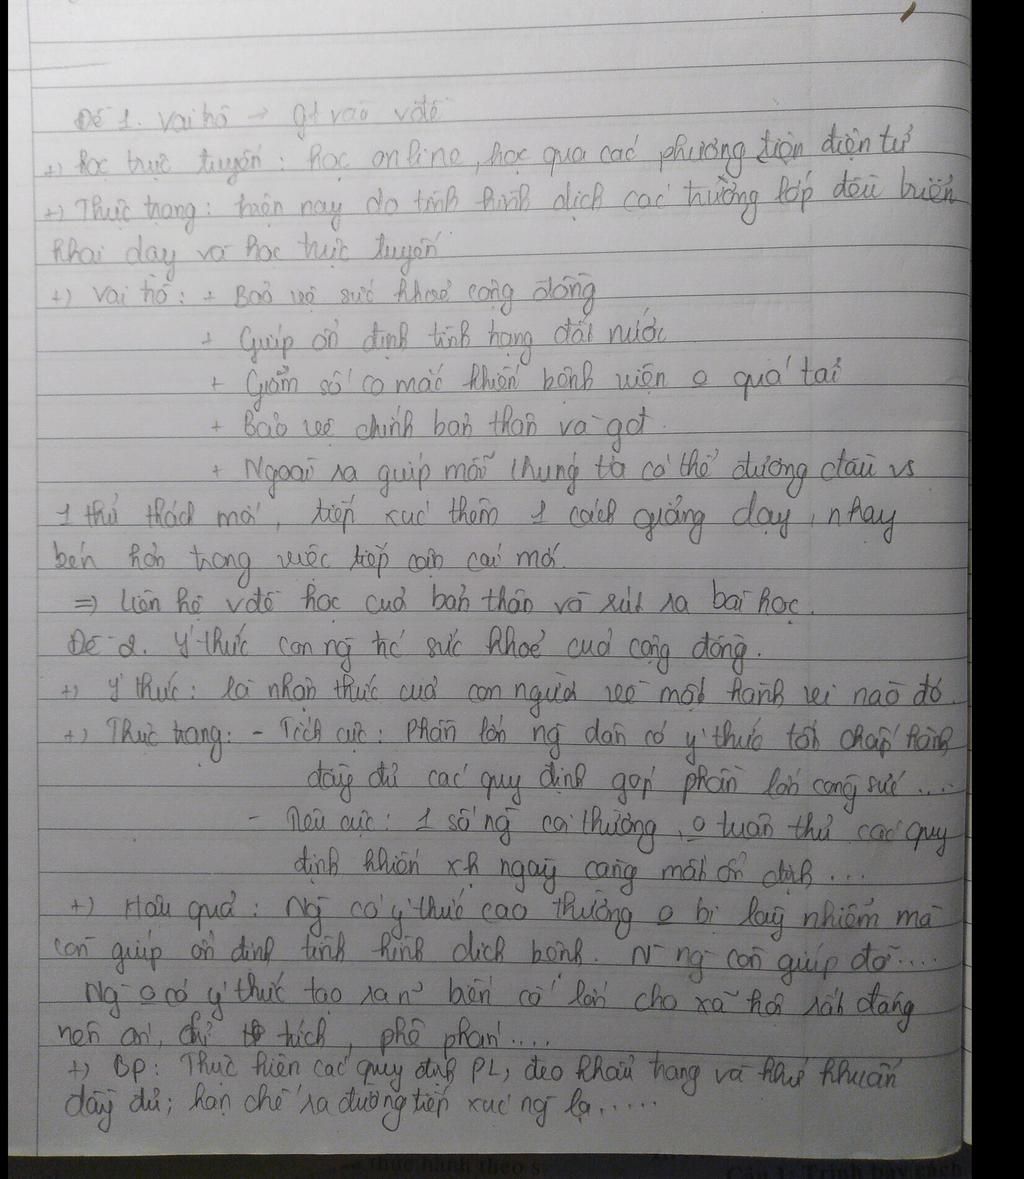 Đề 1. Vai trò → gt vào vđề
+) Học trực tuyến : học online, học qua các phương tiện điện tử
+) Thực trạng : hiện nay do tình hình dịch các trường lớp đều triển
khai dạy và học trực tuyến
+) Vai trò : + Bảo vệ sức khoẻ cộng đồng
+ Giúp ổn định tình trạng đất nước
+ Giảm số ca mắc khiến bệnh viện o quá tải
+ Bảo vệ chính bản thân và gđ.
+ Ngoài ra giúp mỗi chúng ta có thể đương đầu vs
1 thử thách mới, tiếp xúc thêm 1 cách giảng dạy, nhạy
bén hơn trong việc tiếp cận cái mới.
=> Liên hệ vđề học của bản thân và rút ra bài học.
Đề 2. Ý thức con ng trc sức khoẻ của cộng đồng.
+) Ý thức : là nhận thức của con người về một hành vi nào đó.
+) Thực trạng : - Tích cực : Phần lớn ng dân có ý thức tốt chấp hành
đầy đủ các quy định góp phần lớn công sức ....
- Tiêu cực : 1 số ng coi thường, o tuân thủ các quy
định khiến xh ngày càng mất ổn định ...
+) Hậu quả : Ng có ý thức cao thường o bị lây nhiễm mà
còn giúp ổn định tình hình dịch bệnh. N~ ng còn giúp đỡ ....
Ng o có ý thức tạo ra n~ biến cố lớn cho xã hội rất đáng
nên án, chỉ trích, phê phán ....
+) BP : Thực hiện các quy định PL, đeo khẩu trang và khử khuẩn
đầy đủ ; hạn chế ra đường tiếp xúc ng lạ .....
thực hành theo s
Câu 1: Trình bày cách